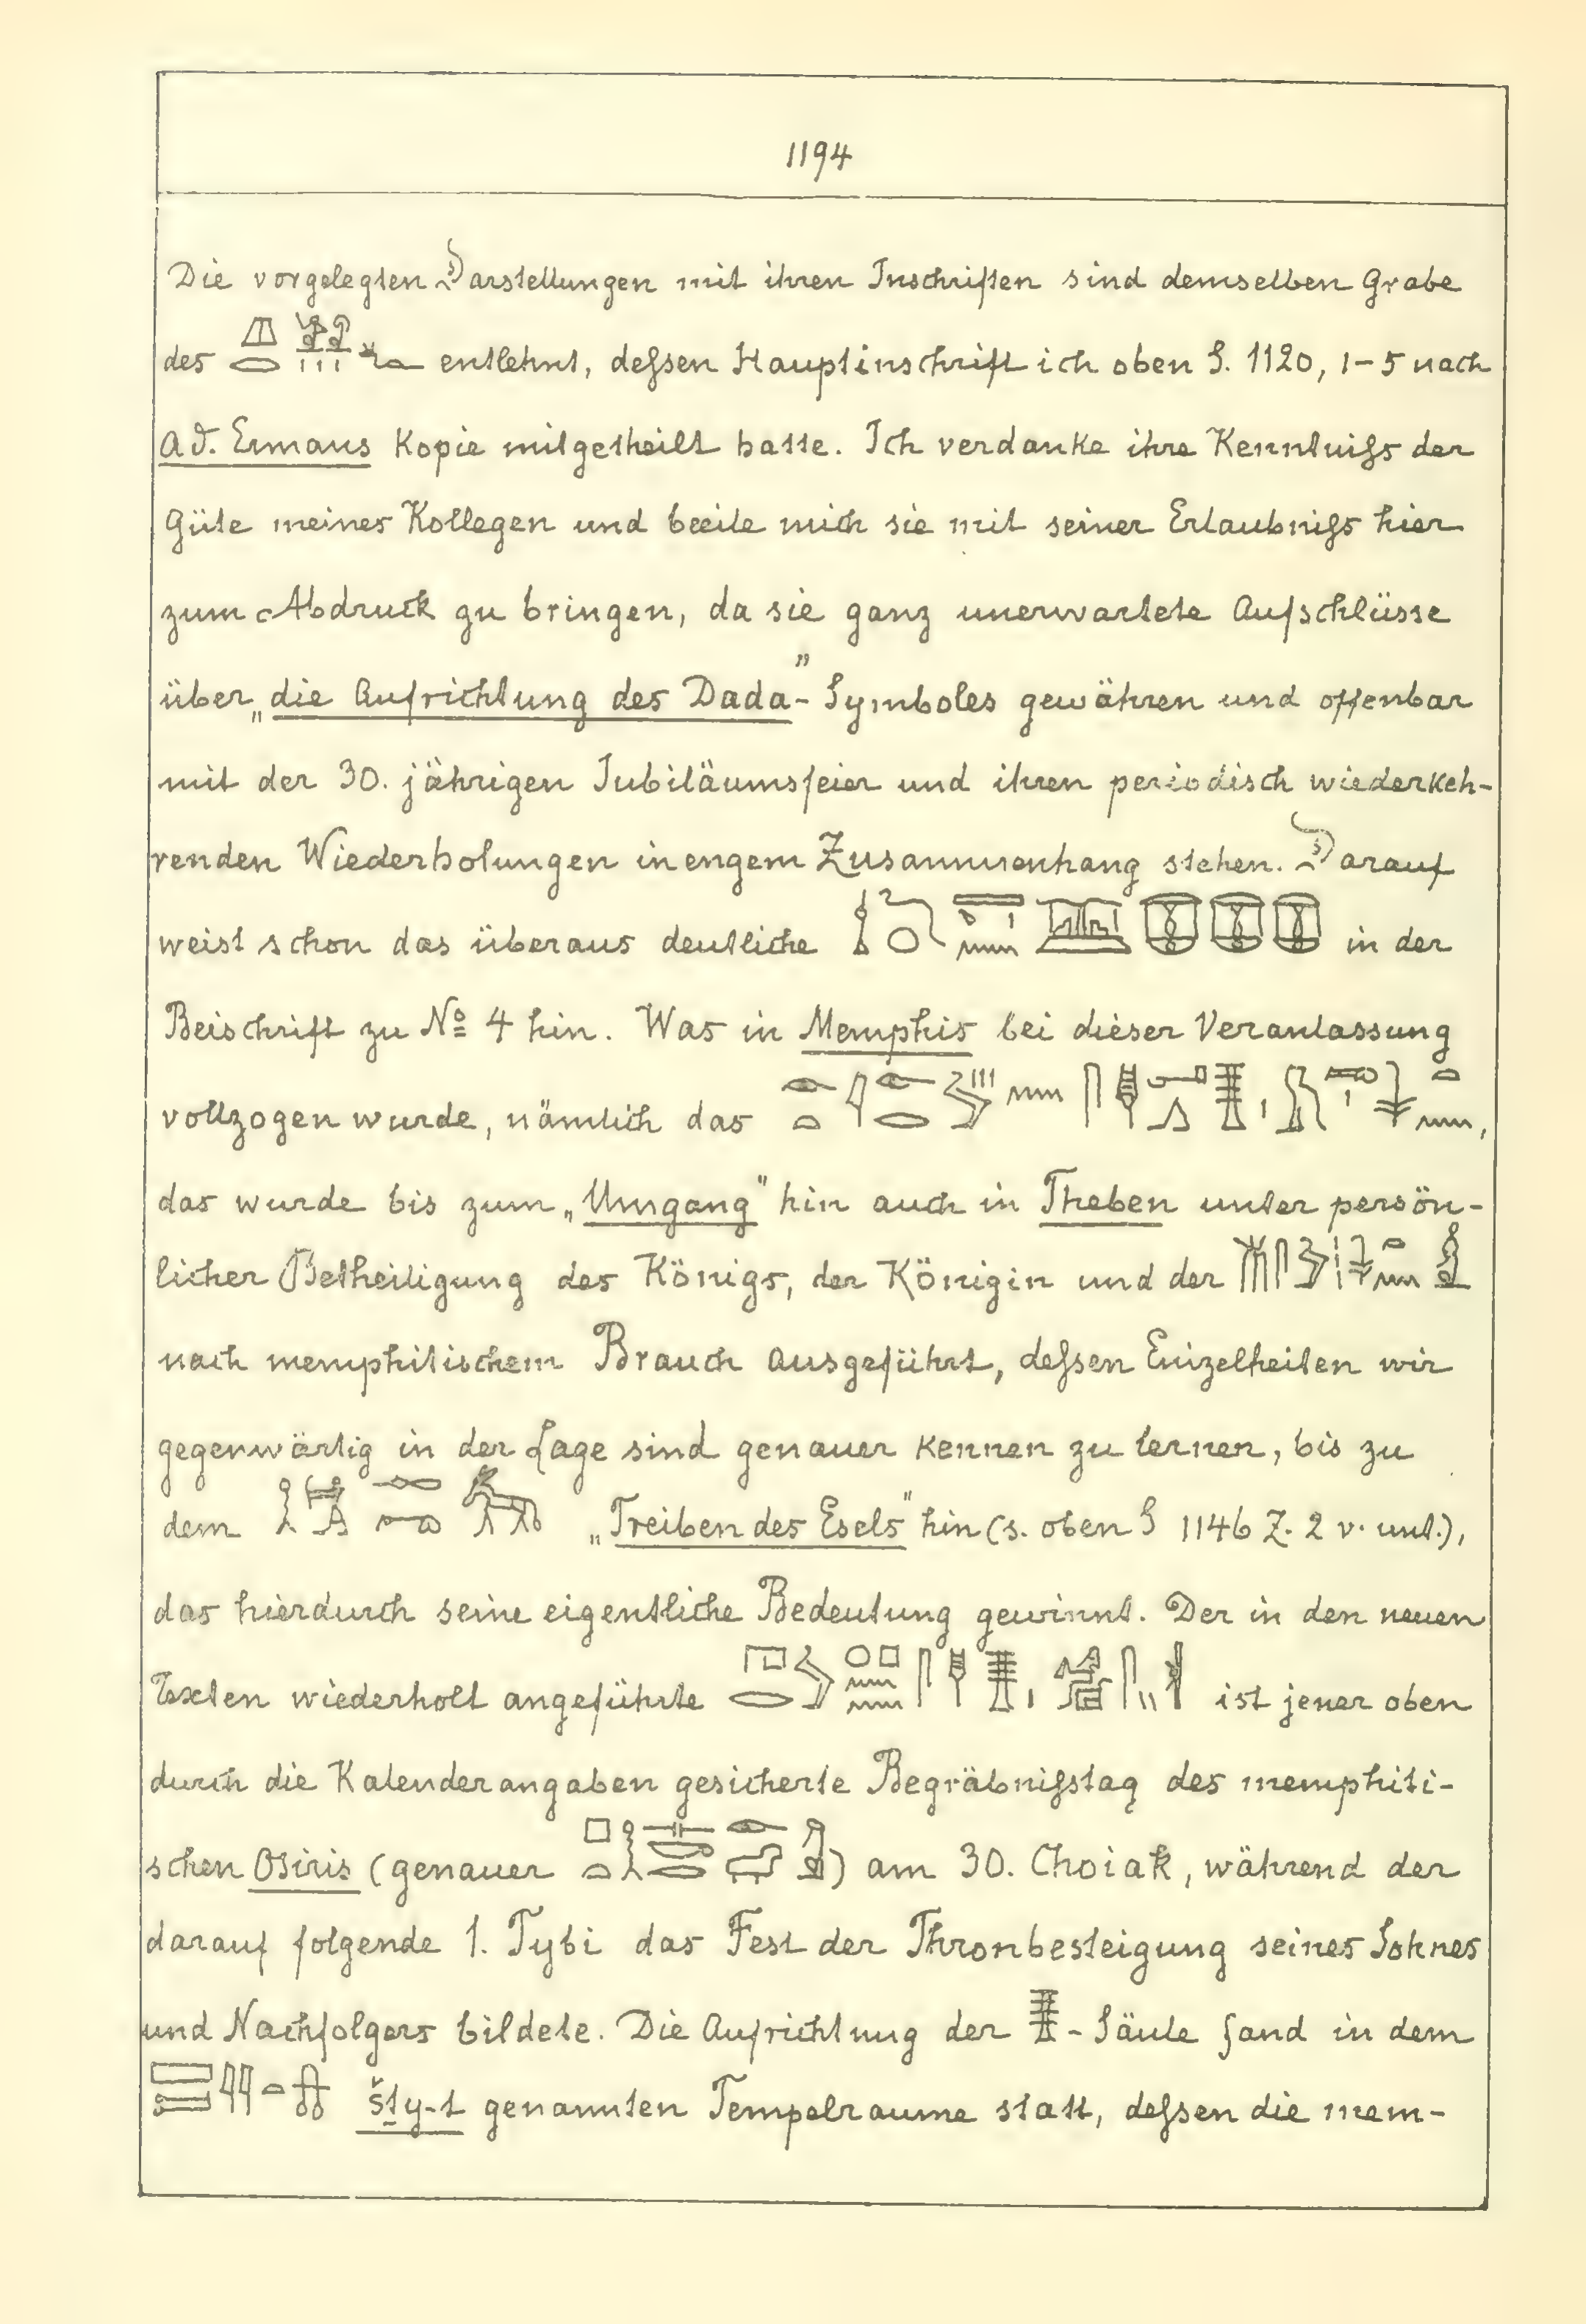 1194
Die vorgelegten Darstellungen mit ihren Inschriften sind demselben Grabe
des entlehnt, deſsen Hauptinschrift ich oben S. 1120, 1–5 nach
Ad. Ermans Kopie mitgetheilt hatte. Ich verdanke ihre Kenntniſs der
Güte meines Kollegen und beeile mich sie mit seiner Erlaubniſs hier
zum Abdruck zu bringen, da sie ganz unerwartete Aufschlüsse
über „die Aufrichtung des Dada"- Symboles gewähren und offenbar
mit der 30. jährigen Jubiläumsfeier und ihren periodisch wiederkeh-
renden Wiederholungen in engem Zusammenhang stehen. Darauf
weist schon das überaus deutliche in der
Beischrift zu No 4 hin. Was in Memphis bei dieser Veranlassung
vollzogen wurde, nämlich das ,
das wurde bis zum „Umgang" hin auch in Theben unter persön-
licher Betheiligung des Königs, der Königin und der
nach memphitischem Brauch ausgeführt, deſsen Einzelheiten wir
gegenwärtig in der Lage sind genauer kennen zu lernen, bis zu
dem „Treiben des Esels" hin (s. oben S 1146 Z. 2 v. unt.),
das hierdurch seine eigentliche Bedeutung gewinnt. Der in den neuen
Texten wiederholt angeführte ist jener oben
durch die Kalenderangaben gesicherte Begräbniſstag des memphiti-
schen Osiris (genauer ) am 30. Choiak, während der
darauf folgende 1. Tybi das Fest der Thronbesteigung seines Sohnes
und Nachfolgers bildete. Die Aufrichtung der - Säule fand in dem
šṯy-t genannten Tempelraume statt, deſsen die mem-